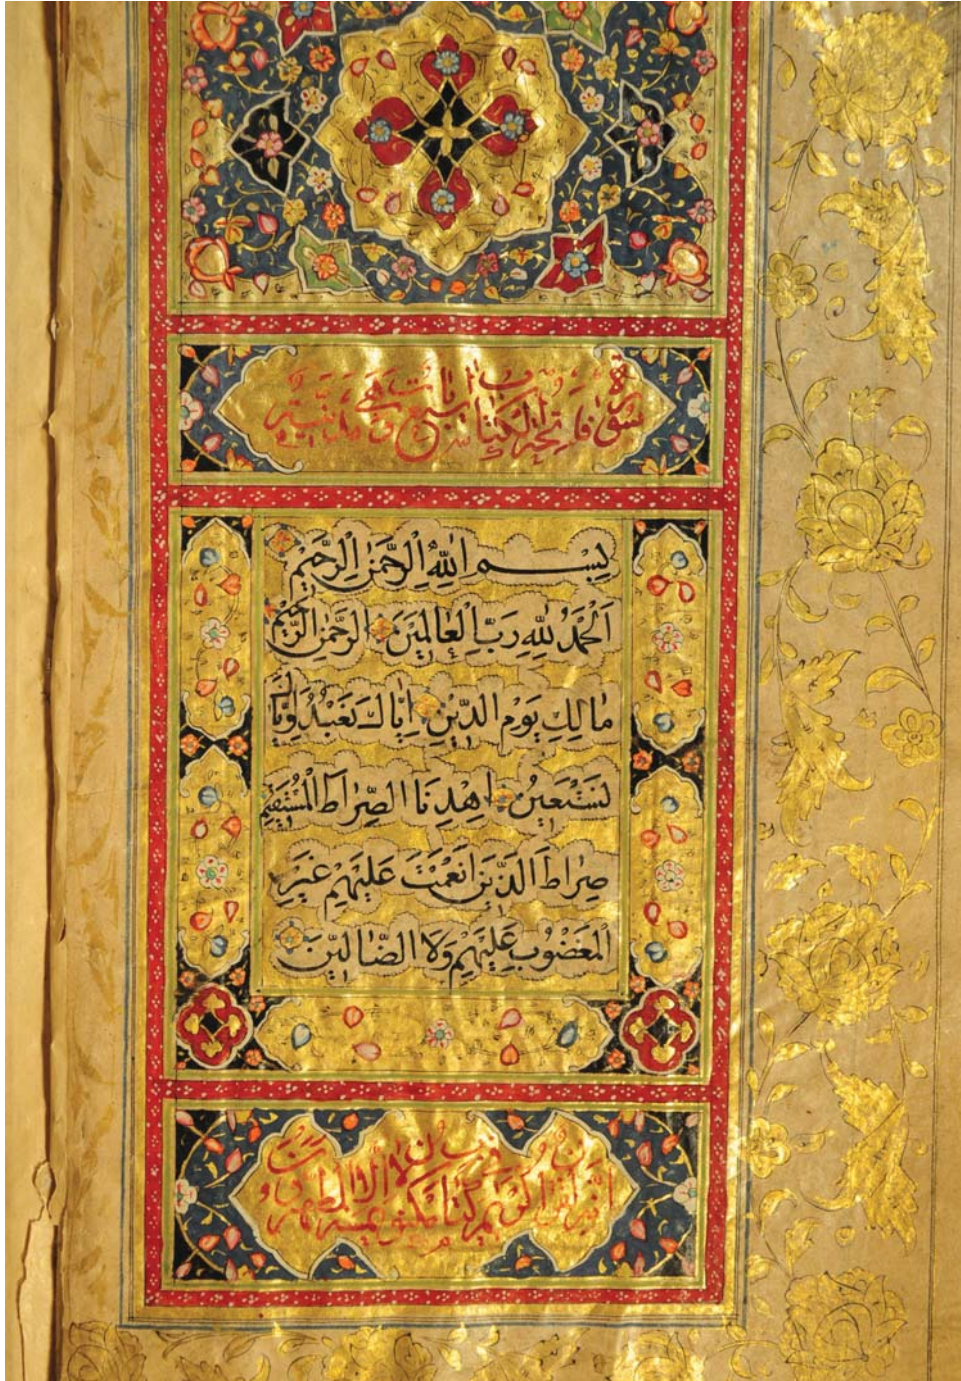 سورة فاتحة الكتاب سبع آیات وهي
بِسْمِ اللّٰهِ الرَّحْمٰنِ الرَّحِيْمِ
اَلْحَمْدُ لِلّٰهِ رَبِّ الْعٰالَمِيْنَ الرَّحْمٰنِ الرَّحِيْمِ
مٰالِكِ يَوْمِ الدّٖيْنِ اِيّٰاكَ نَعْبُدُ وَاِيّٰاكَ
نَسْتَعٖيْنُ اِهْدِنَا الصِّرٰاطَ الْمُسْتَقٖيْمَ
صِرٰاطَ الَّذٖيْنَ اَنْعَمْتَ عَلَيْهِمْ غَيْرِ
الْمَغْضُوْبِ عَلَيْهِمْ وَلَا الضّٰالّٖيْنَ
انه لقران كريم في كتاب مكنون لا يمسه الا المطهرون